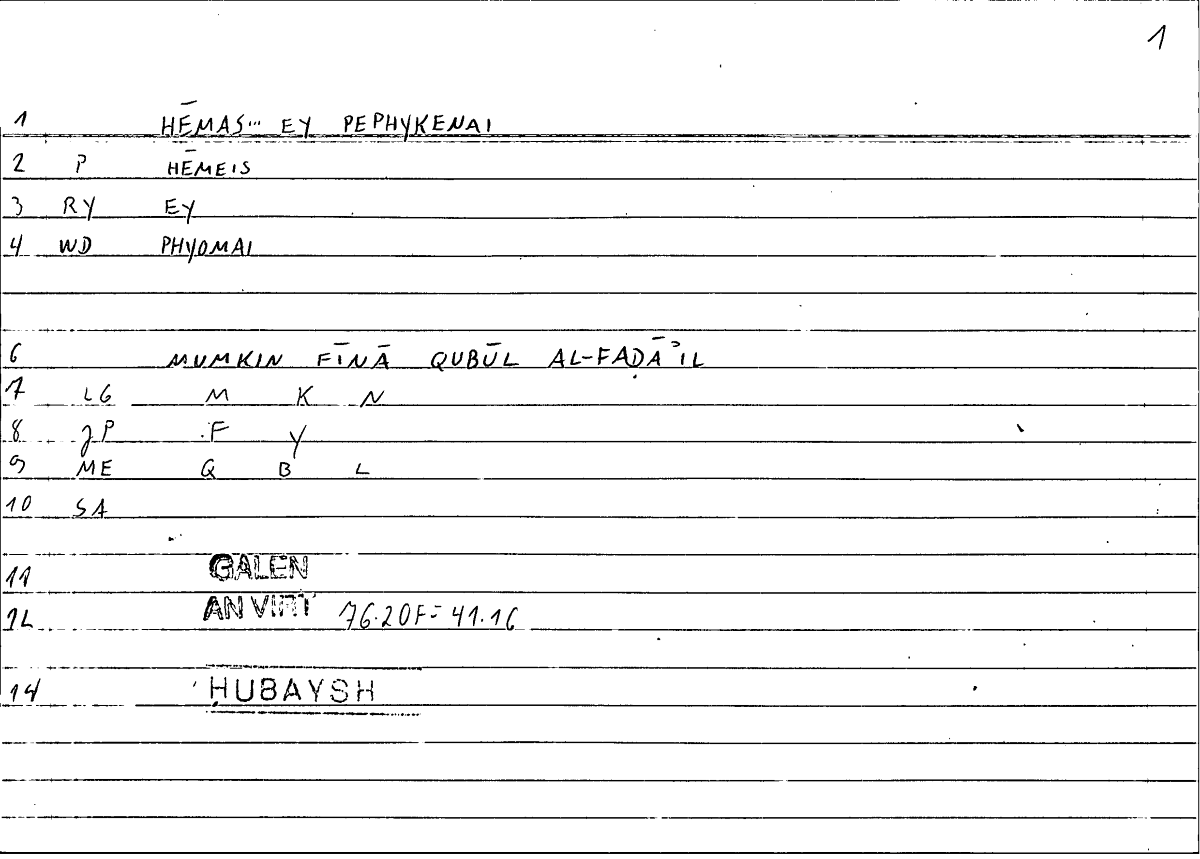 1
1 HĒMAS... EY PEPHYKENAI
2 P HĒMEIS
3 RY EY
4 WD PHYOMAI
6 MUMKIN FĪNĀ QUBŪL AL-FAḌĀʾIL
7 LG M K N
8 JP F Y
9 ME Q B L
10 SA
11 GALEN
12 AN VIRT 76.20F = 41.16
14 ḤUBAYSH